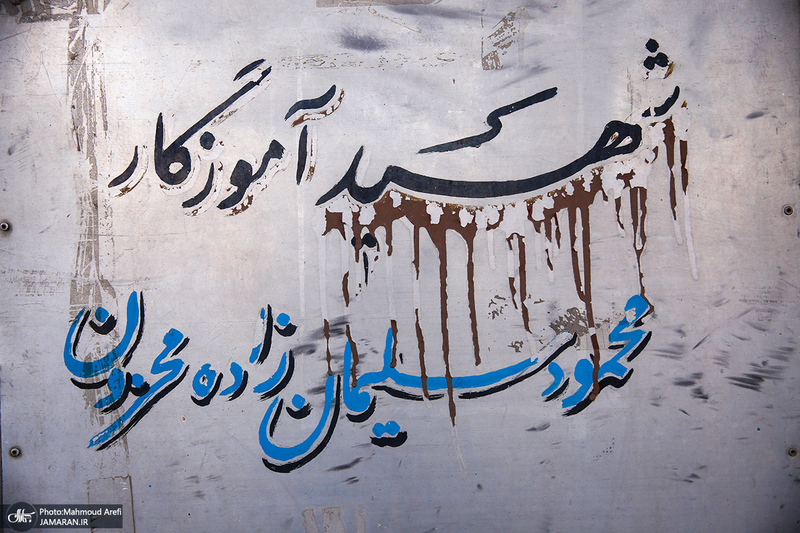 شهید آموزگار
محمود سلیمان زاده محزون
Photo:Mahmoud Arefi
JAMARAN.IR